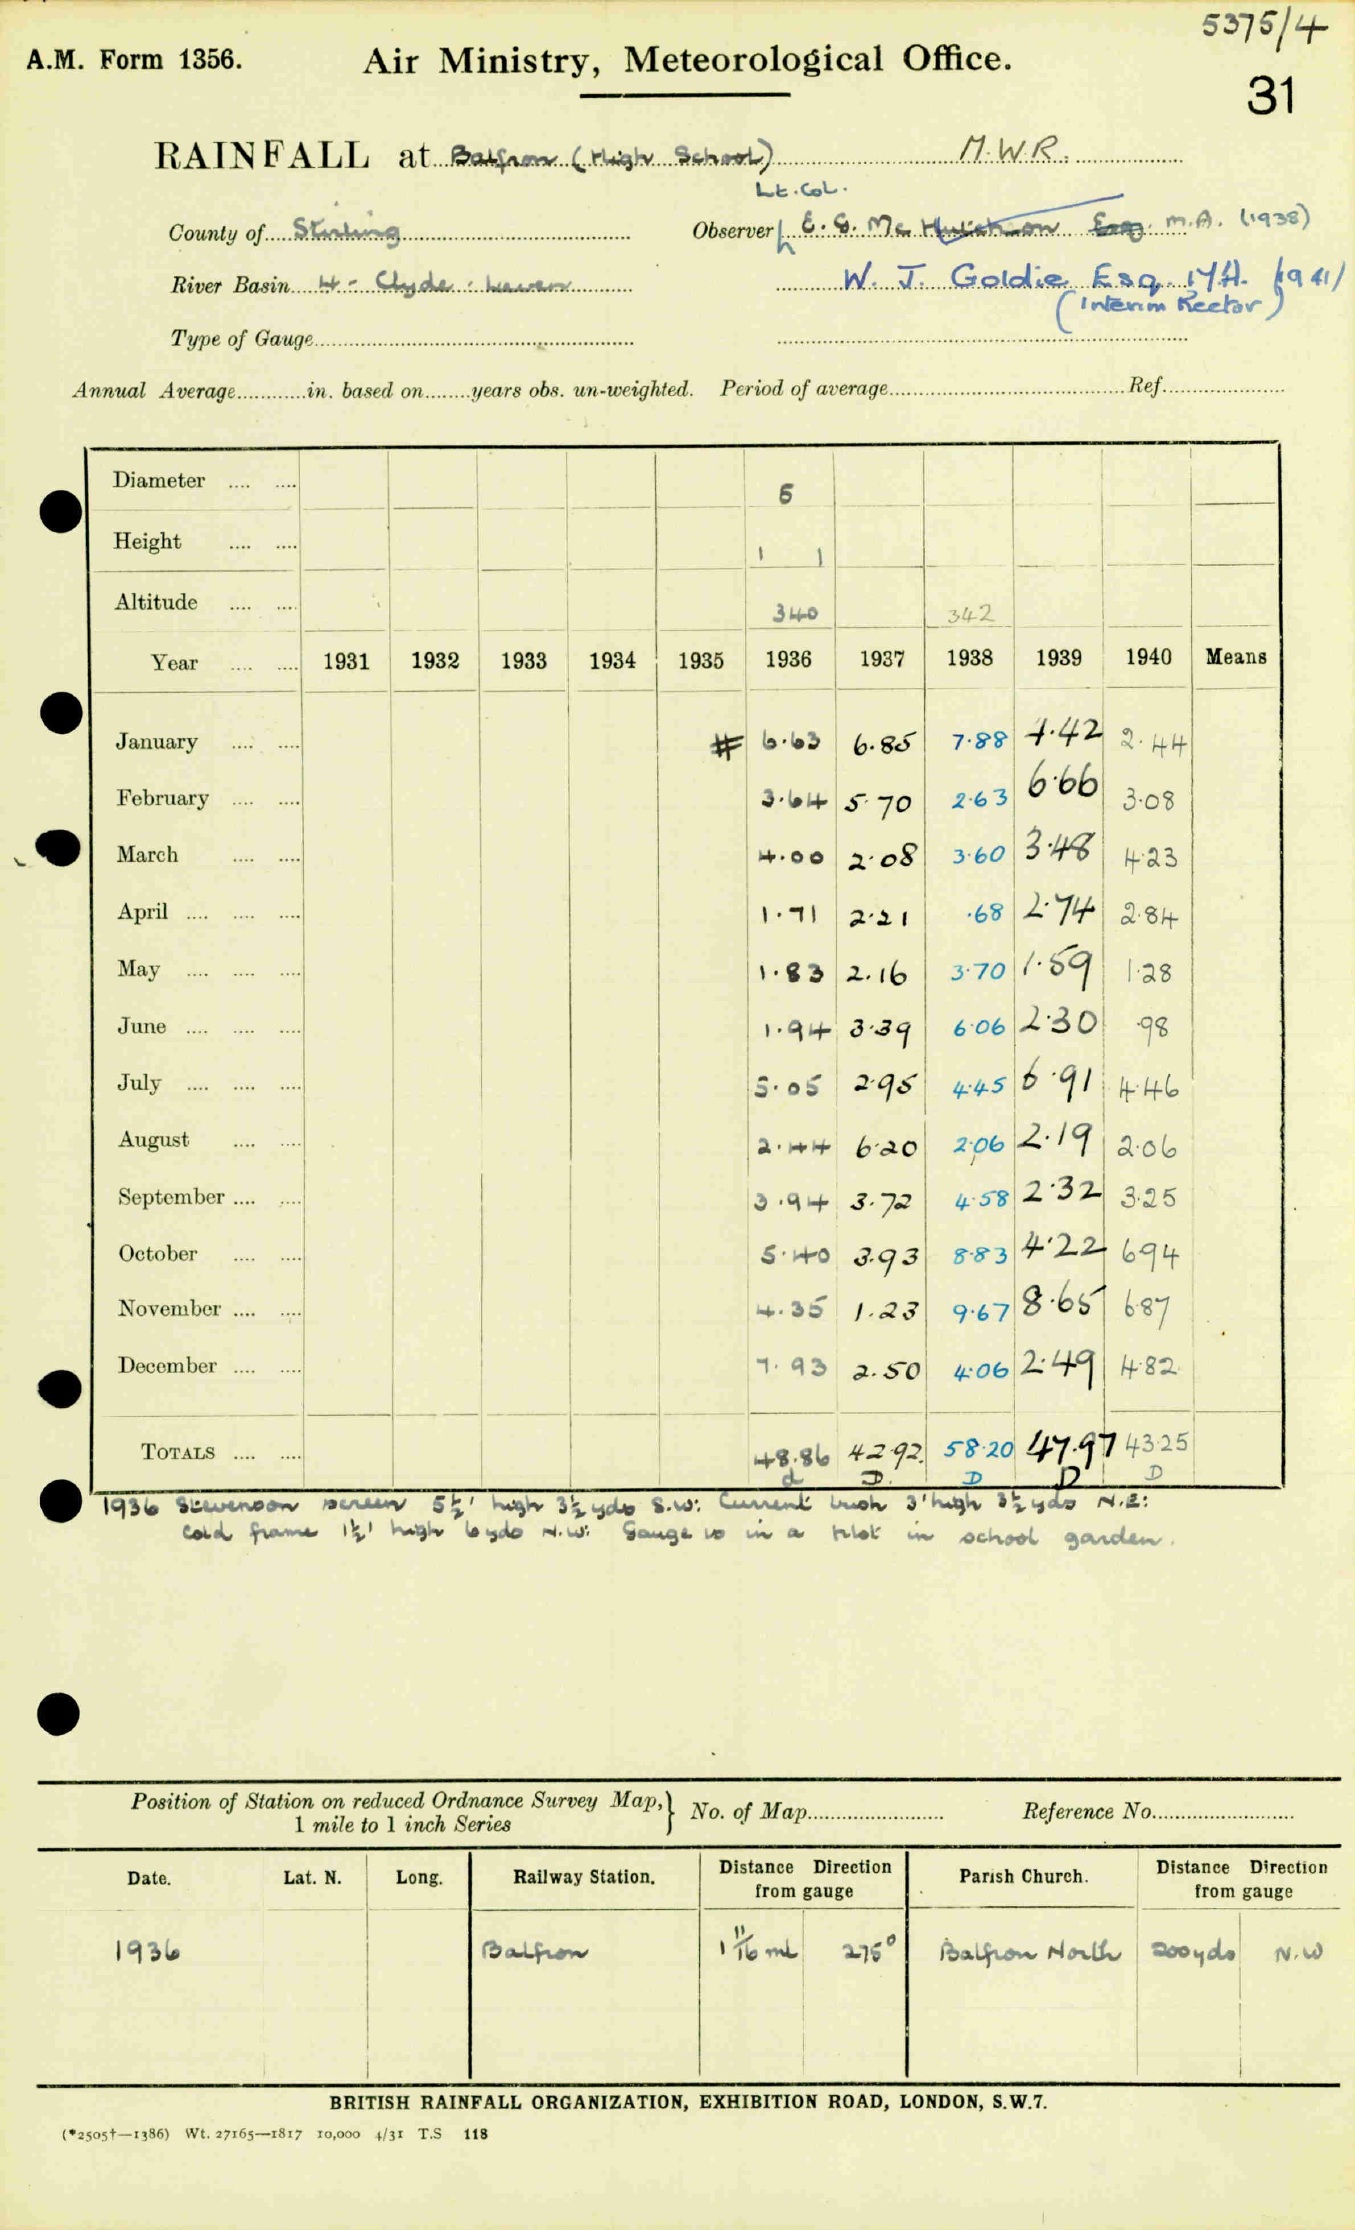 5375/4
A.M. Form 1356. Air Ministry, Meteorological Office.
31
RAINFALL at Balfron (High School) M.W.R.
Lt. Col.
County of Stirling Observer E. G. McHutchison Esq. M.A. (1938)
River Basin 4 - Clyde - Leven W. J. Goldie Esq. M.A. 1941
(Interim Rector)
Type of Gauge
Annual Average in. based on years obs. un-weighted. Period of average Ref.
Diameter .... .... 5
Height .... .... 1 1
Altitude .... .... 340 342
Year .... .... 1931 1932 1933 1934 1935 1936 1937 1938 1939 1940 Means
January .... .... # 6.63 6.85 7.88 4.42 2.44
February .... .... 3.64 5.70 2.63 6.66 3.08
March .... .... 4.00 2.08 3.60 3.48 4.23
April .... .... .... 1.71 2.21 .68 2.74 2.84
May .... .... .... 1.83 2.16 3.70 1.59 1.28
June .... .... .... 1.94 3.39 6.06 2.30 .98
July .... .... .... 5.05 2.95 4.45 6.91 4.46
August .... .... 2.44 6.20 2.06 2.19 2.06
September .... .... 3.94 3.72 4.58 2.32 3.25
October .... .... 5.40 3.93 8.83 4.22 6.94
November .... .... 4.35 1.23 9.67 8.65 6.87
December .... .... 7.93 2.50 4.06 2.49 4.82
TOTALS .... .... 48.86 42.92 58.20 47.97 43.25
d D. D D D
1936 Stevenson screen 5½' high 3½ yds S.W: Currant bush 3' high 3½ yds N.E:
Cold frame 1½' high 6 yds N.W: Gauge is in a plot in school garden.
Position of Station on reduced Ordnance Survey Map, } No. of Map Reference No.
1 mile to 1 inch Series
Date. Lat. N. Long. Railway Station. Distance Direction from gauge Parish Church. Distance Direction from gauge
1936 Balfron 1 11/16 ml 275° Balfron North 200 yds N.W
BRITISH RAINFALL ORGANIZATION, EXHIBITION ROAD, LONDON, S.W.7.
(*2505†—1386) Wt. 27165—1817 10,000 4/31 T.S 118